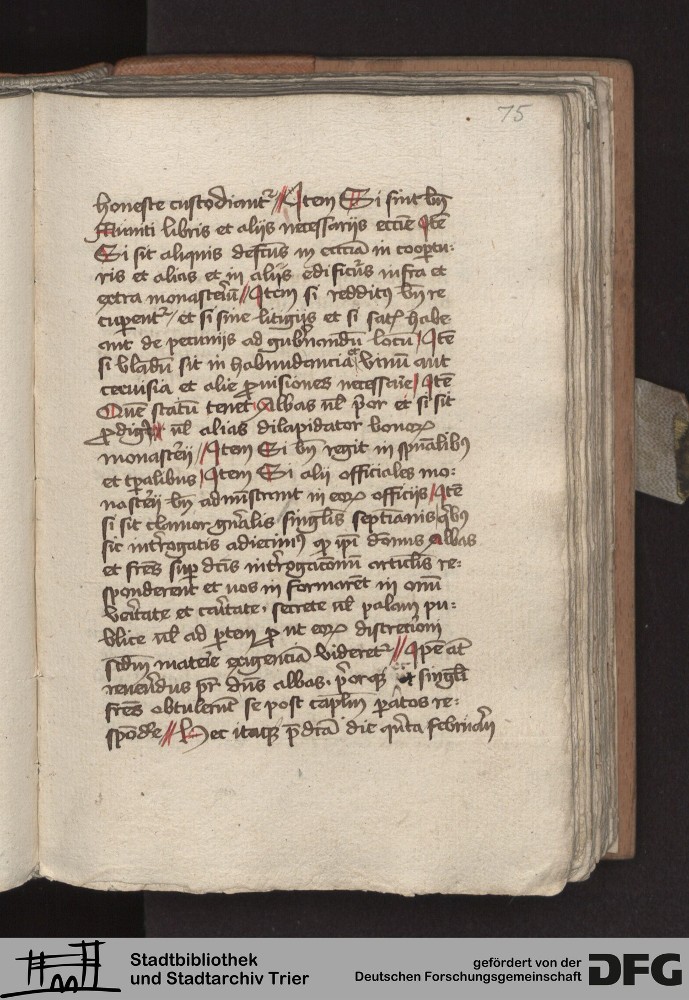 75
honeste custodiant᷑ // Item Si sint bn̄
Muniti libris et aliis necessariis eccīe Itē
Si sit aliquis defcūs in ecclīa in coopertu-
ris et alias et in aliis edificiis infra et
extra monasteriū // Item si redditus bn̄ re
cuperent᷑ / et si sine litigiis et si satis habe
ant de pecuniis ad gubernandū locū / Itē
si bladū sit in habundancia et vinū aut
cervisia et alie provisiones necessarie / Itē
Quē statū tenet Abbas ul̄ prior et si sit
prodigus ul̄ alias dilapidator bonorum
monasterii // Item Si bn̄ regit in spūalibus
et tp̄alibus / Item Si alii officiales mo:
nasterii bn̄ administrant in eorum officiis / Itē
si sit clamor gn̄alis singulis septimanis quibus
sic interrogatis adiecimus qd ip̄i domnus Abbas
et frēs super dictis interrogacionum articulis re:
sponderent et nos informarent in omni
veritate et caritate · secrete ul̄ palam pu:
blice ul̄ ad partem prout eorum discretioni
sedm̄ materie exigenciā videret᷑ // Ipse at
reverendus pr̄ dn̄s abbas · priorque et singuli
frēs obtulerunt se post caplm̄ paratos re:
spondere // Hec itaque predicta die quinta februarii
Stadtbibliothek
und Stadtarchiv Trier
gefördert von der
Deutschen Forschungsgemeinschaft
DFG